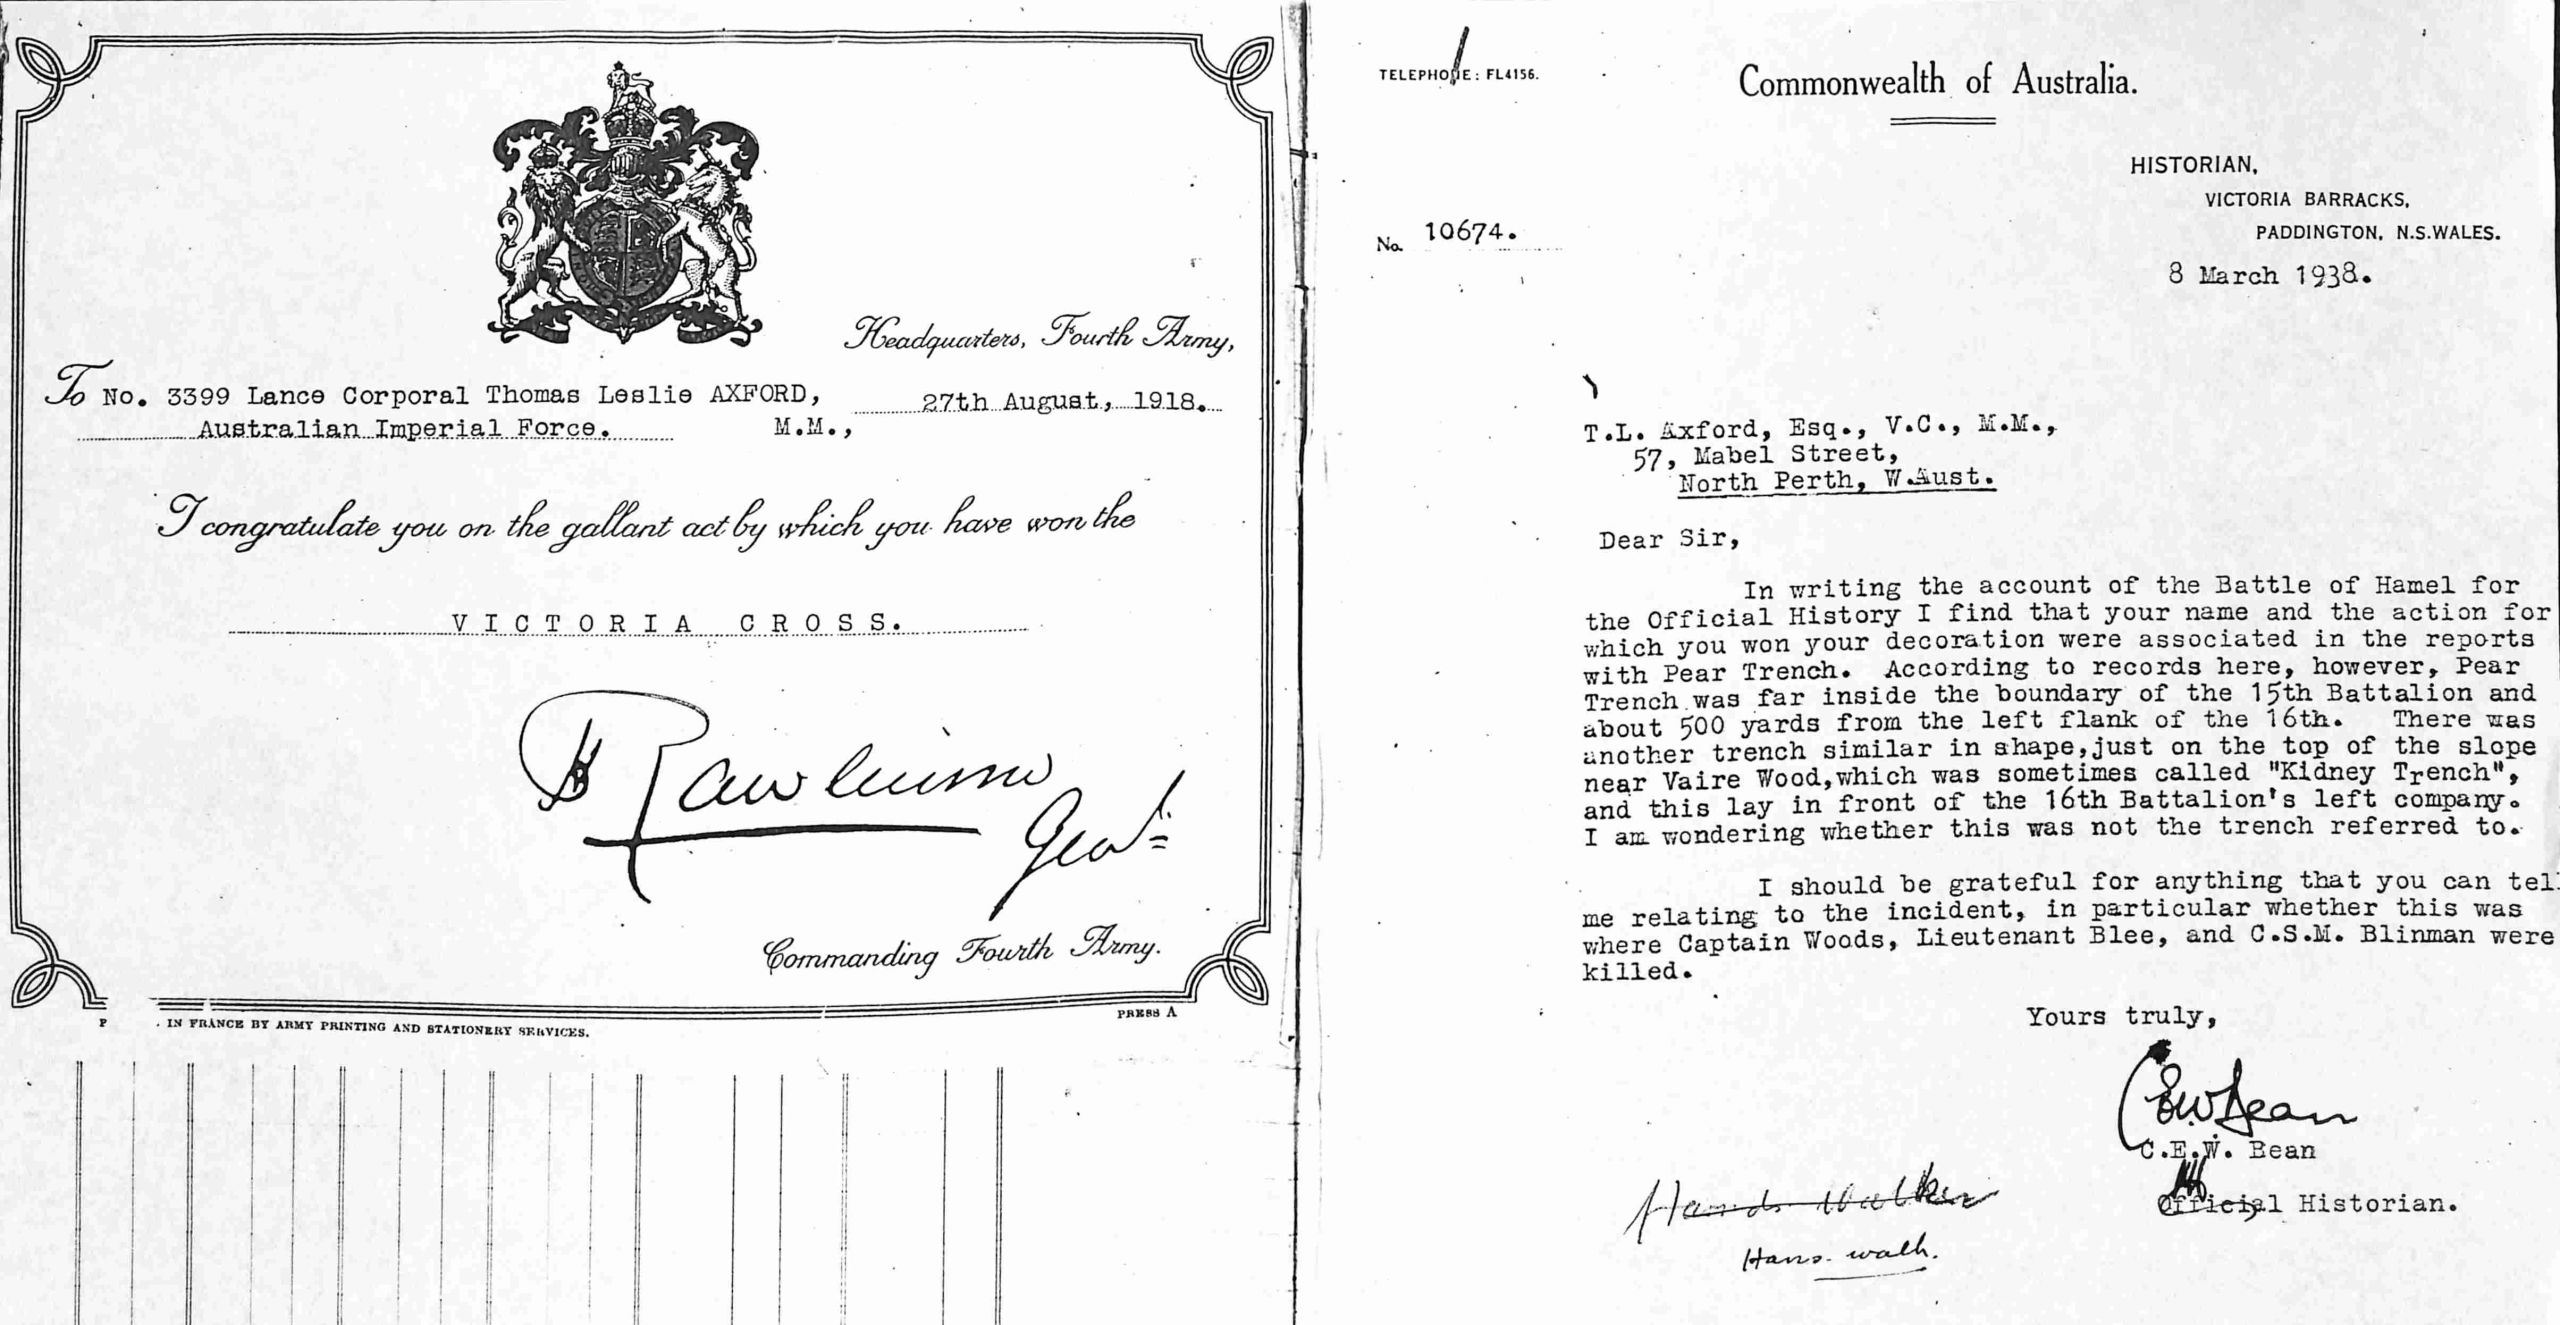 Headquarters, Fourth Army,
To No. 3399 Lance Corporal Thomas Leslie AXFORD,
27th August, 1918.
Australian Imperial Force. M.M.,
I congratulate you on the gallant act by which you have won the
VICTORIA CROSS.
H Rawlinson
Genl
Commanding Fourth Army.
IN FRANCE BY ARMY PRINTING AND STATIONERY SERVICES.
PRESS A
TELEPHONE: FL4156.
Commonwealth of Australia.
HISTORIAN,
VICTORIA BARRACKS,
PADDINGTON, N.S.WALES.
No. 10674.
8 March 1938.
T.L. Axford, Esq., V.C., M.M.,
57, Mabel Street,
North Perth, W.Aust.
Dear Sir,
In writing the account of the Battle of Hamel for
the Official History I find that your name and the action for
which you won your decoration were associated in the reports
with Pear Trench. According to records here, however, Pear
Trench was far inside the boundary of the 15th Battalion and
about 500 yards from the left flank of the 16th. There was
another trench similar in shape, just on the top of the slope
near Vaire Wood, which was sometimes called "Kidney Trench",
and this lay in front of the 16th Battalion's left company.
I am wondering whether this was not the trench referred to.
I should be grateful for anything that you can tell
me relating to the incident, in particular whether this was
where Captain Woods, Lieutenant Blee, and C.S.M. Blinman were
killed.
Yours truly,
C.E.W. Bean
C.E.W. Bean
Official Historian.